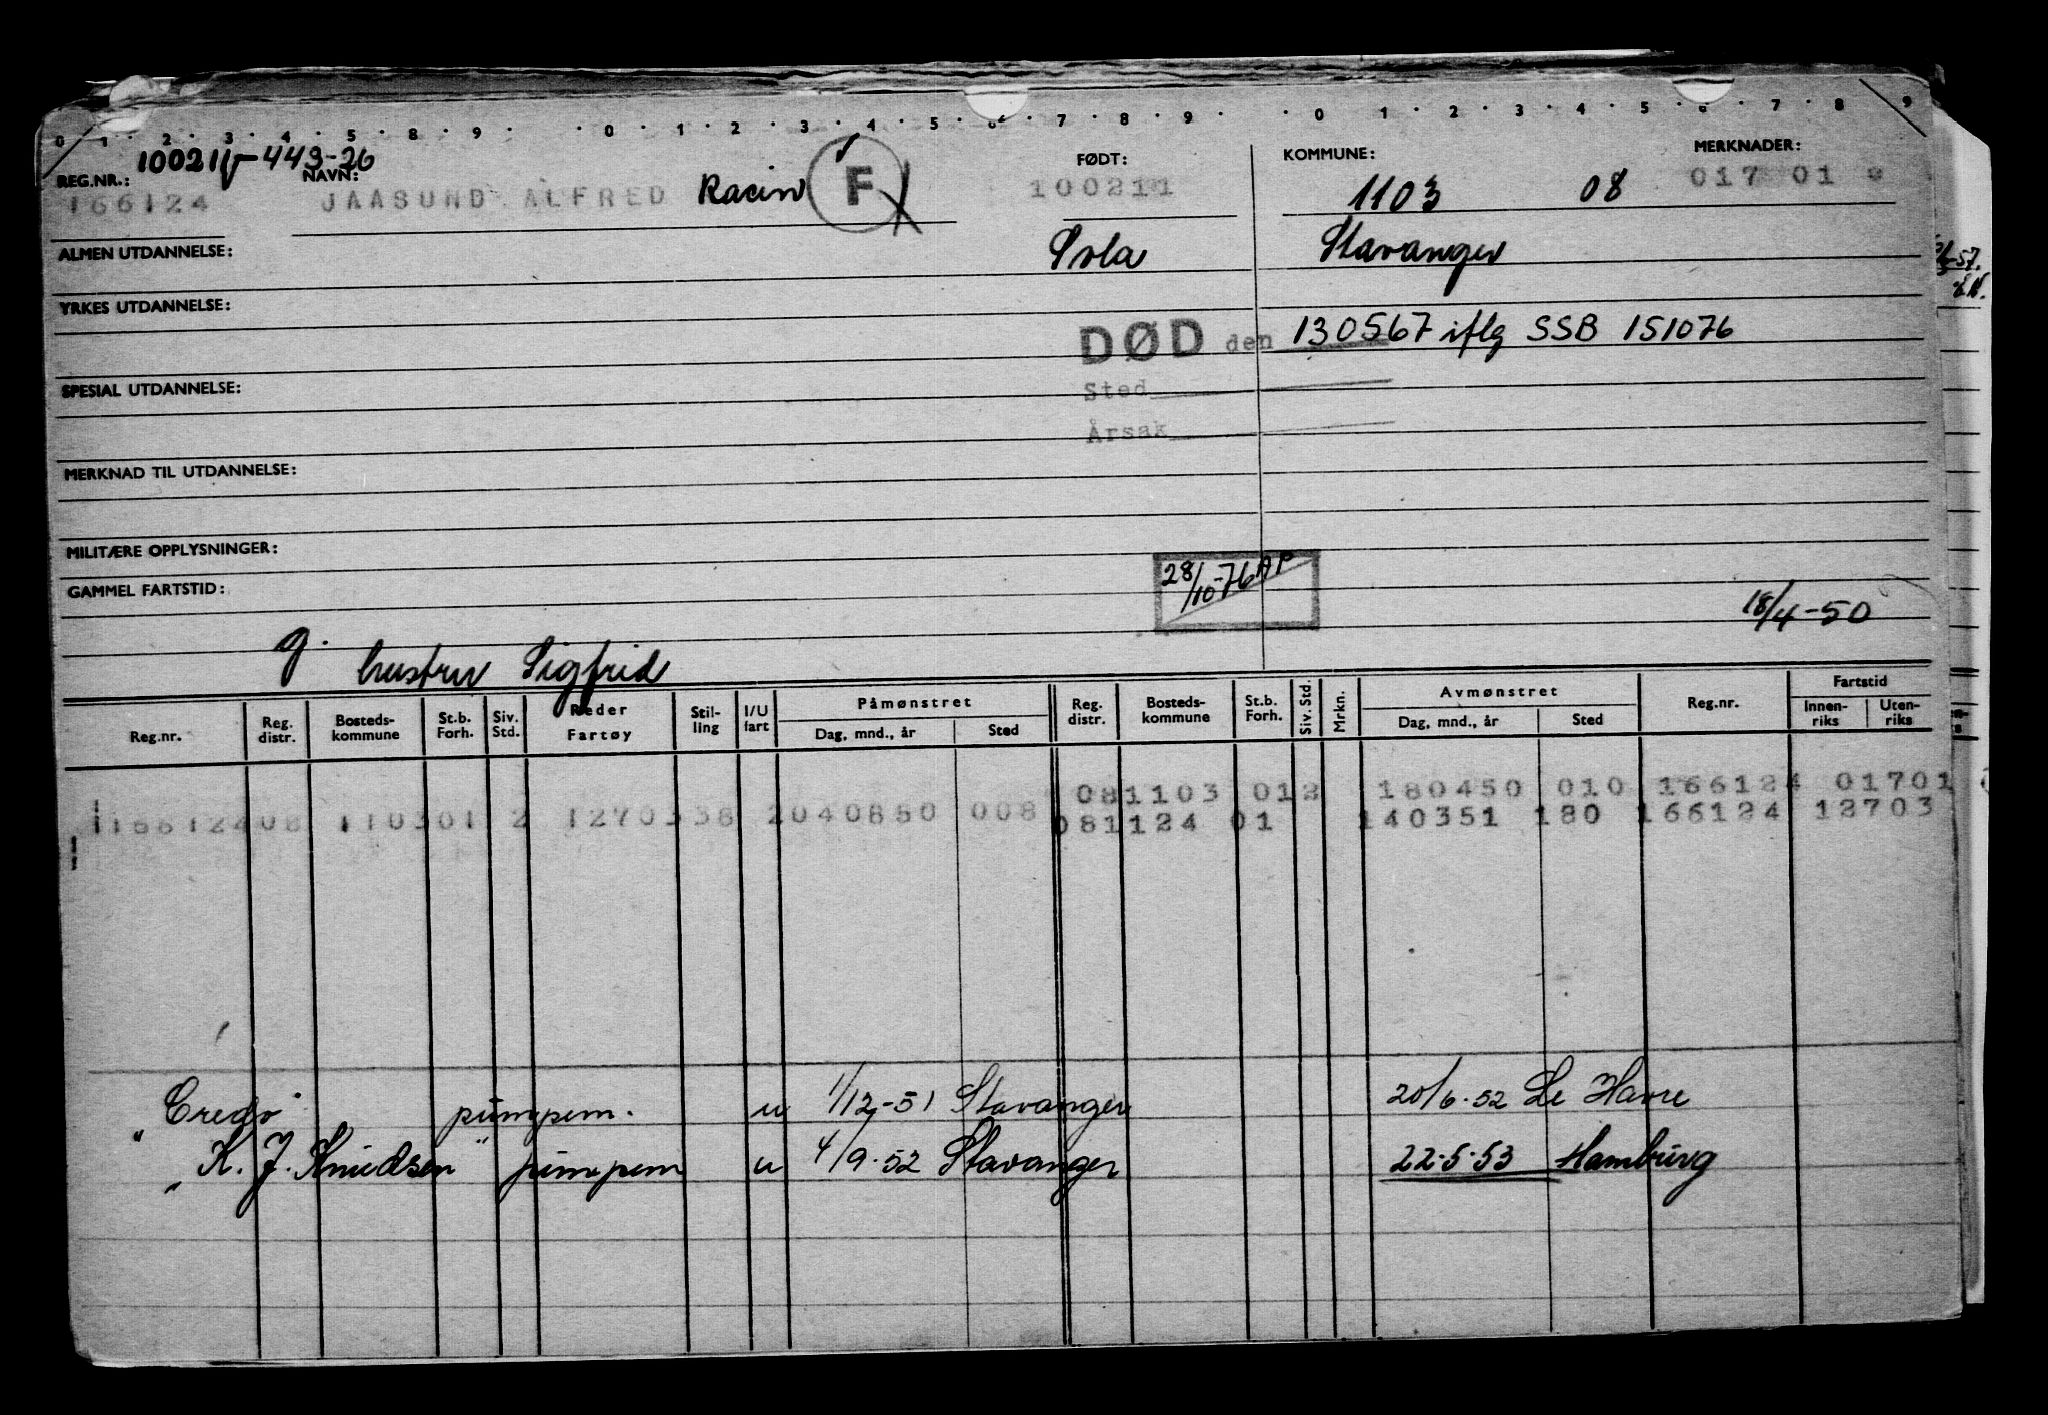 0 1 2 3 4 5 8 9 0 1 2 3 4 5 6 7 8 9 0 1 2 3 4 5 6 7 8 9
100211-443-26
REG.NR.: NAVN: FØDT: KOMMUNE: MERKNADER:
166124 JAASUND ALFRED Racin F 100211 1103 08 017 01
ALMEN UTDANNELSE: Sola Stavanger
YRKES UTDANNELSE:
DØD den 130567 iflg SSB 151076
SPESIAL UTDANNELSE: Sted
Årsak
MERKNAD TIL UTDANNELSE:
MILITÆRE OPPLYSNINGER:
GAMMEL FARTSTID: 28/10-76 AP
18/4-50
g. hustru Sigfrid
Reg.nr. Reg. distr. Bosteds-kommune St.b. Forh. Siv. Std. Reder Fartøy Stil-ling I/U fart Påmønstret Dag, mnd., år Sted Reg. distr. Bosteds-kommune St.b. Forh. Siv. Std. Mrkn. Avmønstret Dag, mnd., år Sted Reg.nr. Fartstid Innen-riks Uten-riks
081103 012 180450 010 166124 01701
116612408 110301 2 1270338 2040850 008 081124 01 140351 180 166124 12703
"Credo" pumpem. u 1/12-51 Stavanger 20/6-52 Le Havre
"K. J. Knudsen" pumpem u 4/9-52 Stavanger 22-5-53 Hamburg